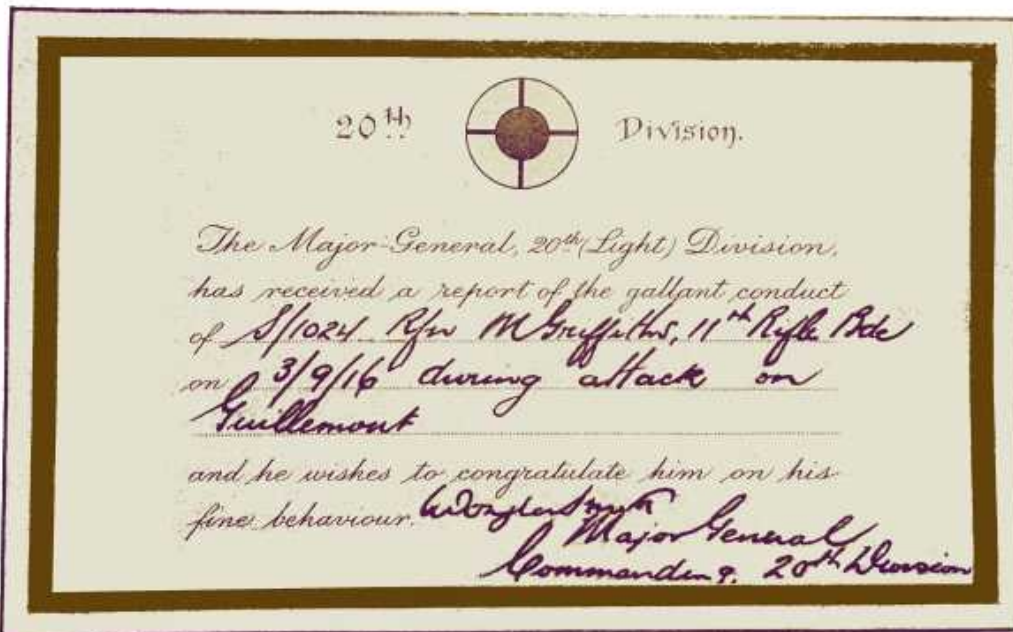 20th Division.
The Major-General, 20th (Light) Division,
has received a report of the gallant conduct
of S/1024 Rfn M Griffiths, 11th Rifle Bde
on 3/9/16 during attack on
Guillemont
and he wishes to congratulate him on his
fine behaviour. W Douglas Smith
Major General
Commanding. 20th Division